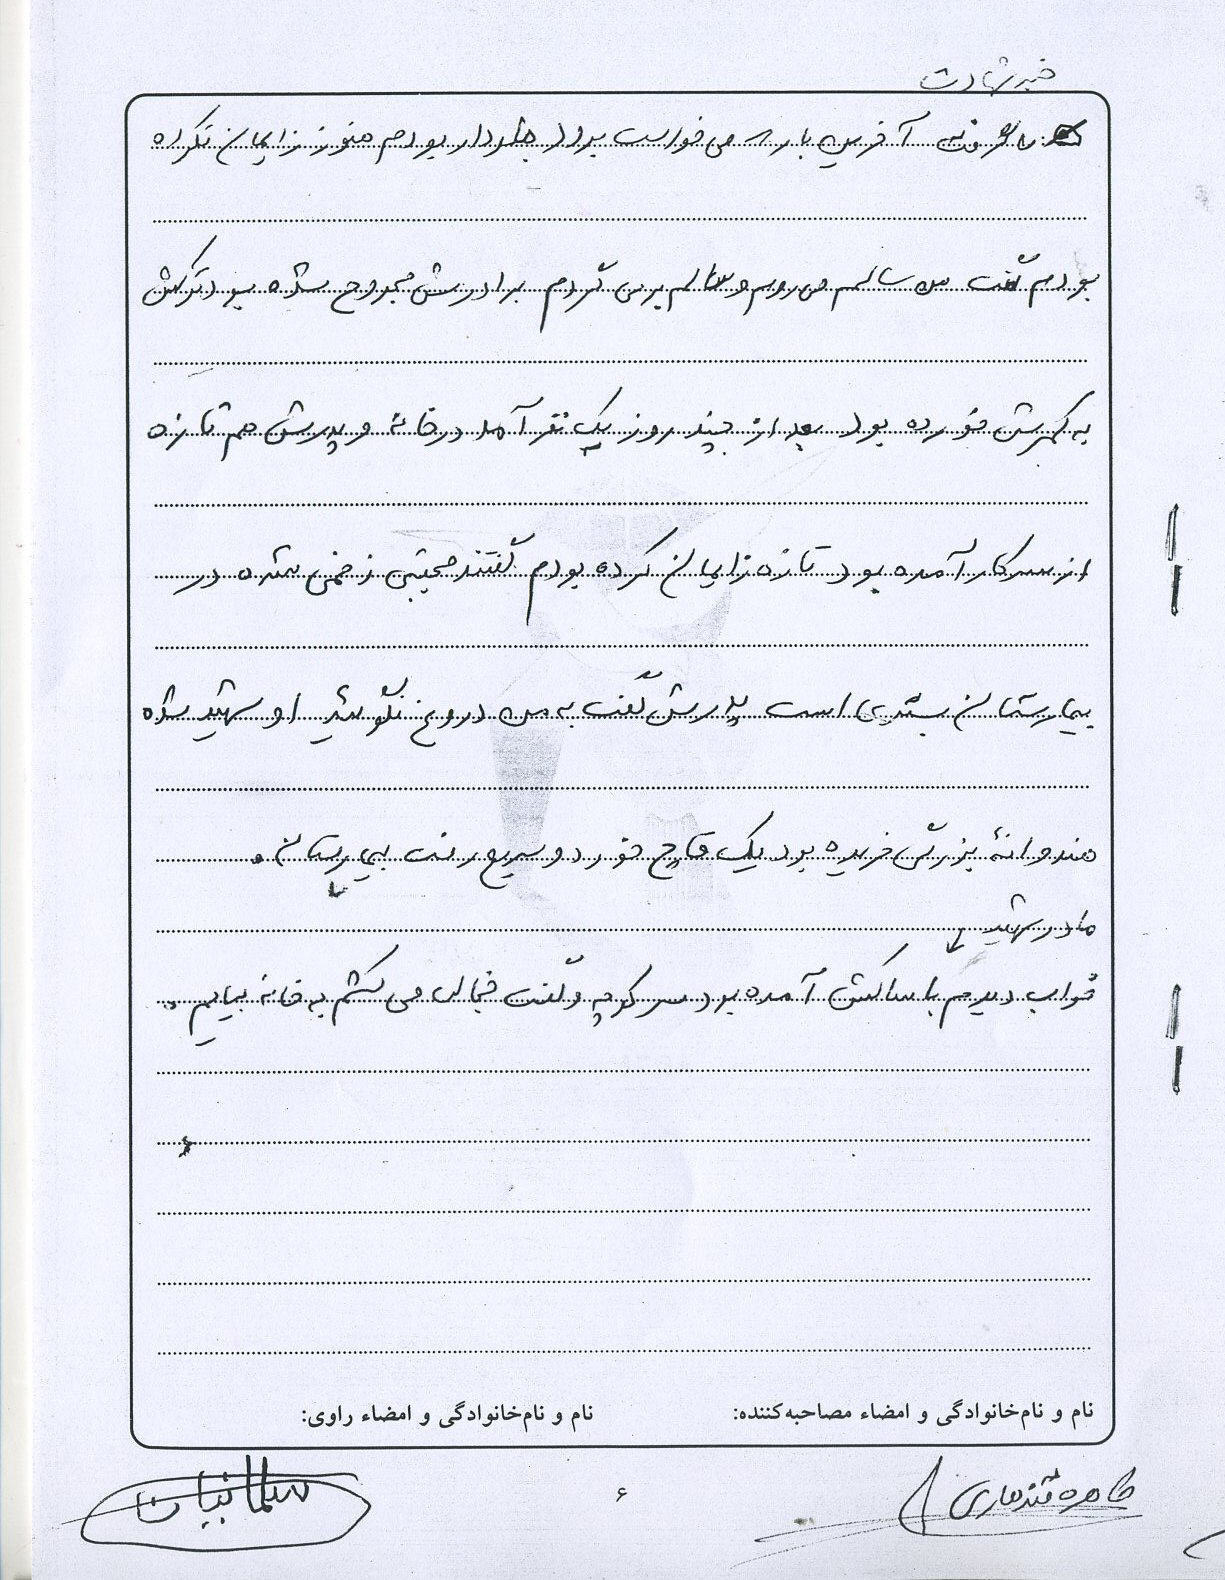 خبر شهادت
آخرین بار که می خواست برود جلودار بودم هنوز زایمان نکرده
بودم گفت من سالم می روم و سالم برمی گردم برادرش مجروح شده بود ترکش
به کمرش خورده بود بعد از چند روز یک نفر آمد در خانه و پدرش هم تازه
از سر کار آمده بود تازه زایمان کرده بودم گفتند مجتبی زخمی شده در
بیمارستان بستری است پدرش گفت به من دروغ نگوئید او شهید شده
هندوانهٔ بزرگی خریده بود یک قاچ خورد و سریع رفت بیمارستان.
مادر شهید
خواب دیدم با ساکش آمده بود سر کوچه و گفت خجالت می کشم به خانه بیایم.
نام و نام‌خانوادگی و امضاء مصاحبه‌کننده: نام و نام‌خانوادگی و امضاء راوی:
طاهره قندهاری ۶ سلمانیان